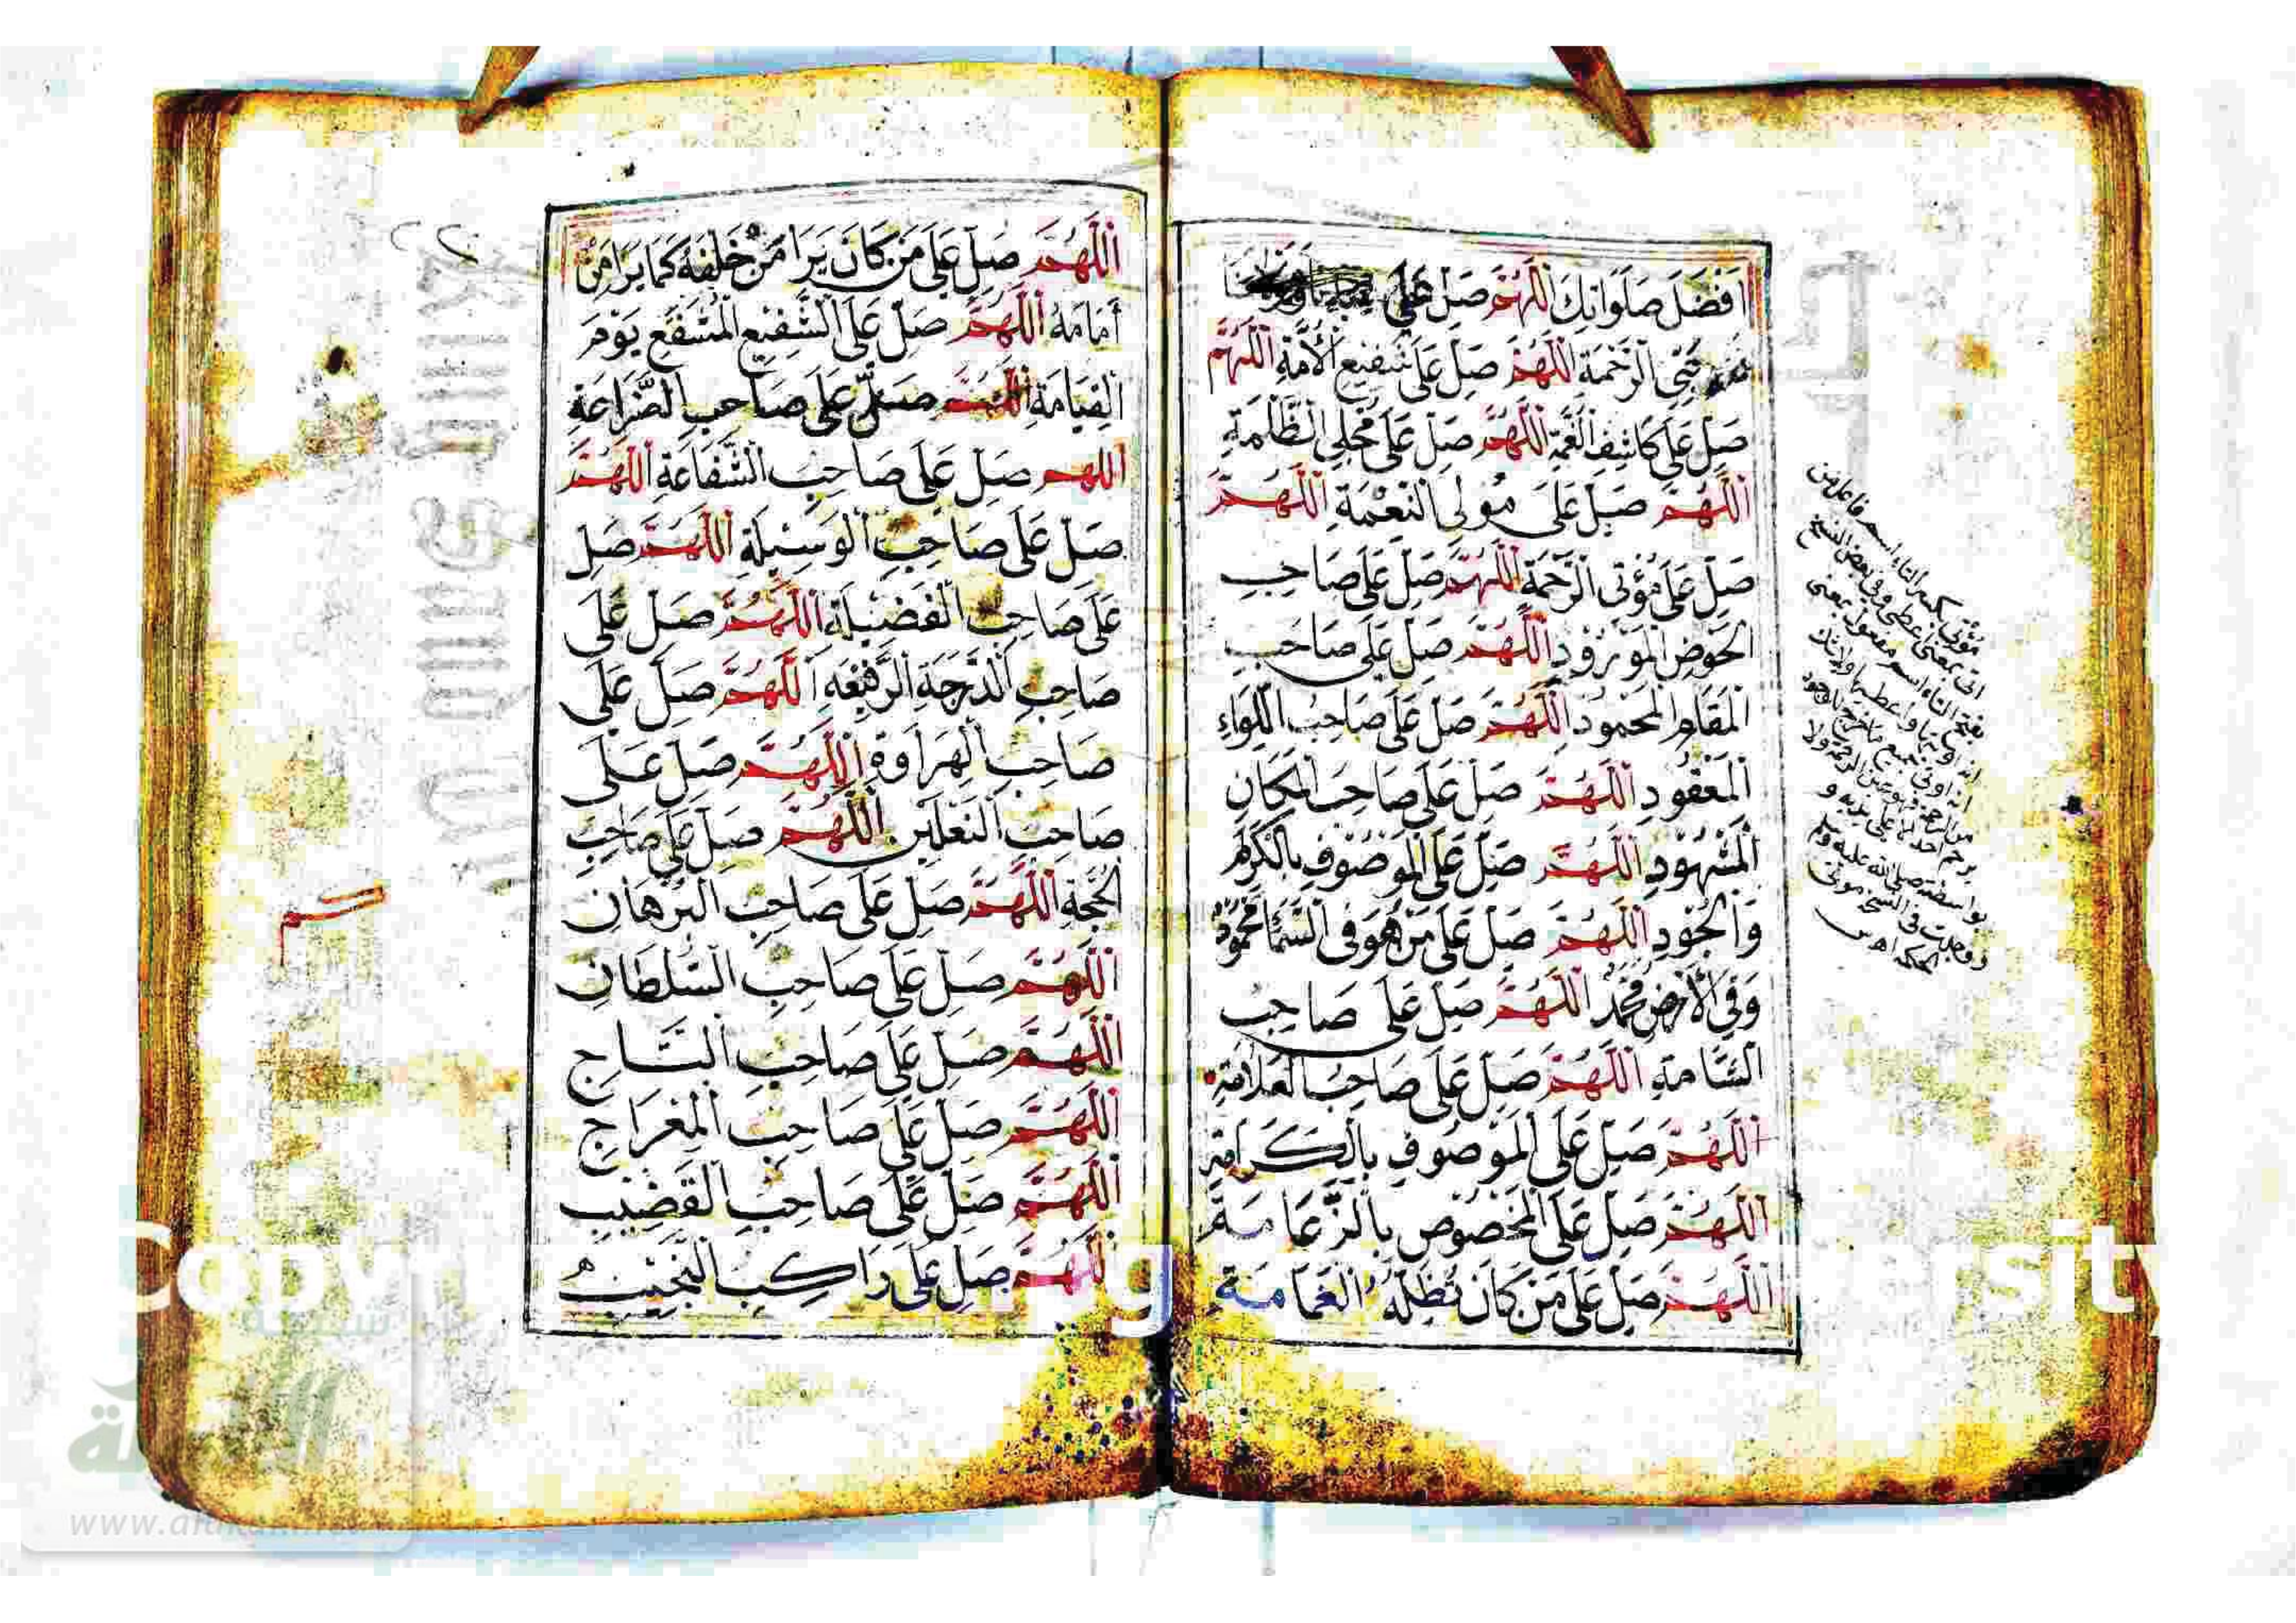 اَفْضَلَ صَلَوَاتِكَ اَللّٰهُمَّ صَلِّ عَلَى
نَبِيِّ الرَّحْمَةِ اَللّٰهُمَّ صَلِّ عَلَى شَفِيعِ الْأُمَّةِ اَللّٰهُمَّ
صَلِّ عَلَى كَاشِفِ الْغُمَّةِ اَللّٰهُمَّ صَلِّ عَلَى مُجْلِي الظُّلْمَةِ
اَللّٰهُمَّ صَلِّ عَلَى مُولِي النِّعْمَةِ اَللّٰهُمَّ
صَلِّ عَلَى مُؤْتِي الرَّحْمَةِ اَللّٰهُمَّ صَلِّ عَلَى صَاحِبِ
الْحَوْضِ الْمَوْرُودِ اَللّٰهُمَّ صَلِّ عَلَى صَاحِبِ
الْمَقَامِ الْمَحْمُودِ اَللّٰهُمَّ صَلِّ عَلَى صَاحِبِ اللِّوَاءِ
الْمَعْقُودِ اَللّٰهُمَّ صَلِّ عَلَى صَاحِبِ الْمَكَانِ
الْمَشْهُودِ اَللّٰهُمَّ صَلِّ عَلَى الْمَوْصُوفِ بِالْكَرَمِ
وَالْجُودِ اَللّٰهُمَّ صَلِّ عَلَى مَنْ هُوَ فِي السَّمَا مَحْمُودٌ
وَفِي الْأَرْضِ مُحَمَّدٌ اَللّٰهُمَّ صَلِّ عَلَى صَاحِبِ
الشَّامَةِ اَللّٰهُمَّ صَلِّ عَلَى صَاحِبِ الْعَلَامَةِ
اَللّٰهُمَّ صَلِّ عَلَى الْمَوْصُوفِ بِالْكَرَامَةِ
اَللّٰهُمَّ صَلِّ عَلَى الْمَخْصُوصِ بِالزَّعَامَةِ
اَللّٰهُمَّ صَلِّ عَلَى مَنْ كَانَ تُظِلُّهُ الْغَمَامَةُ
مؤتي بكسر التاء اسم فاعل من
اتى بمعنى اعطى وفي بعض النسخ
بفتح التاء اسم مفعول بمعنى
صلى الله عليه وسلم
اَللّٰهُمَّ صَلِّ عَلَى مَنْ كَانَ يَرَا مَنْ خَلْفَهُ كَمَا يَرَا مَنْ
أَمَامَهُ اَللّٰهُمَّ صَلِّ عَلَى الشَّفِيعِ الْمُشَفَّعِ يَوْمَ
الْقِيَامَةِ اَللّٰهُمَّ صَلِّ عَلَى صَاحِبِ الضَّرَاعَةِ
اللهم صَلِّ عَلَى صَاحِبِ الشَّفَاعَةِ اَللّٰهُمَّ
صَلِّ عَلَى صَاحِبِ الْوَسِيلَةِ اَللّٰهُمَّ صَلِّ
عَلَى صَاحِبِ الْفَضِيلَةِ اَللّٰهُمَّ صَلِّ عَلَى
صَاحِبِ الدَّرَجَةِ الرَّفِيعَةِ اَللّٰهُمَّ صَلِّ عَلَى
صَاحِبِ الْهِرَاوَةِ اَللّٰهُمَّ صَلِّ عَلَى
صَاحِبِ النَّعْلَيْنِ اَللّٰهُمَّ صَلِّ عَلَى صَاحِبِ
الْحُجَّةِ اَللّٰهُمَّ صَلِّ عَلَى صَاحِبِ الْبُرْهَانِ
اَللّٰهُمَّ صَلِّ عَلَى صَاحِبِ السُّلْطَانِ
اَللّٰهُمَّ صَلِّ عَلَى صَاحِبِ التَّاجِ
اَللّٰهُمَّ صَلِّ عَلَى صَاحِبِ الْمِعْرَاجِ
اَللّٰهُمَّ صَلِّ عَلَى صَاحِبِ الْقَضِيبِ
اَللّٰهُمَّ صَلِّ عَلَى رَاكِبِ النَّجِيبِ
شبكة
الألوكة